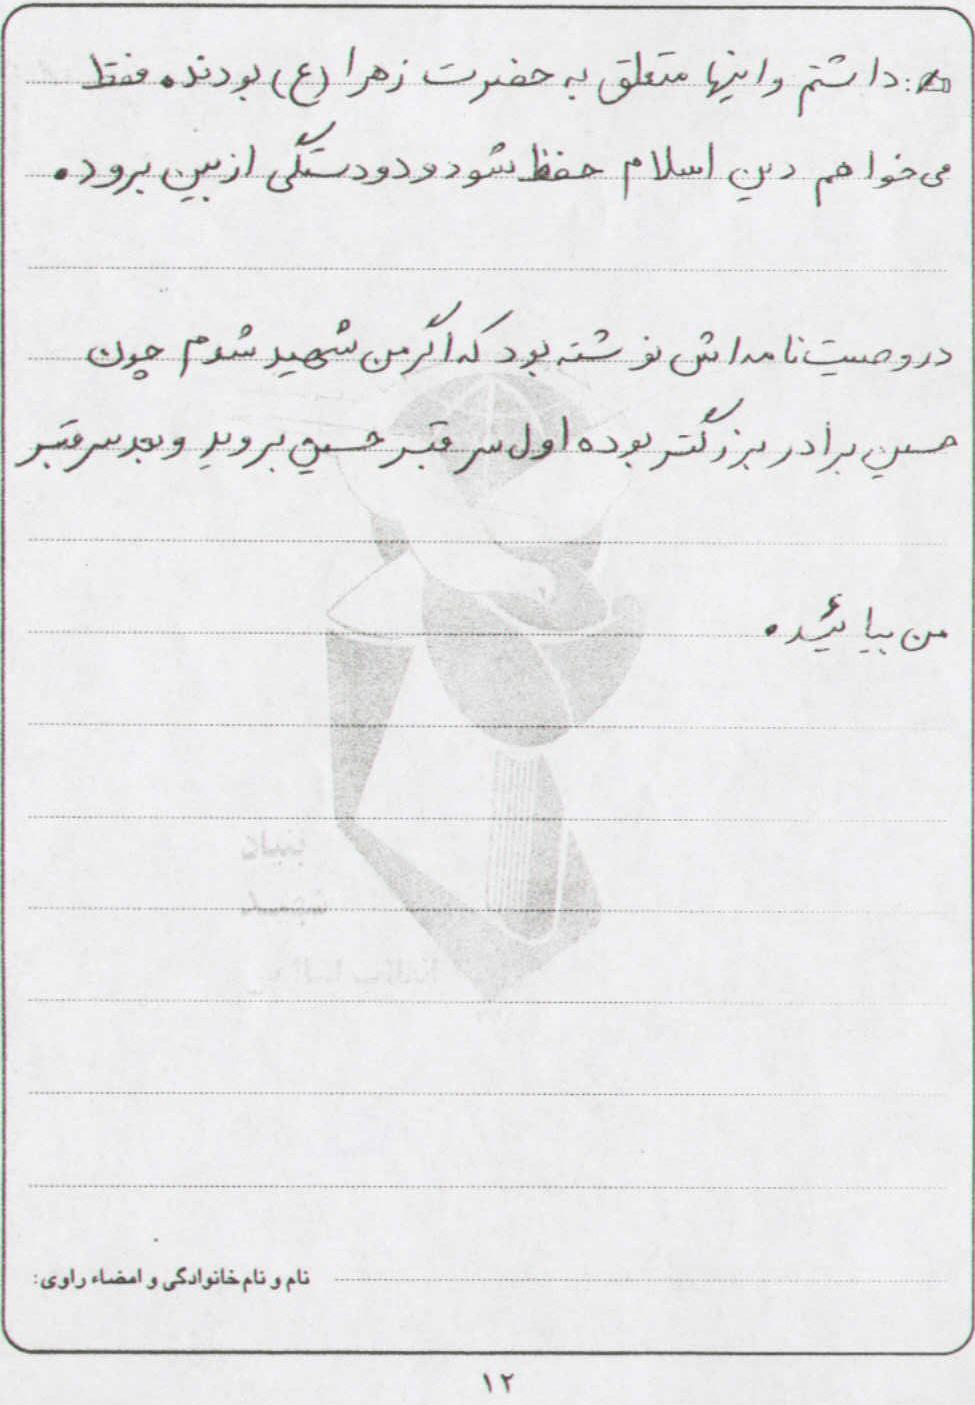 داشتم واینها متعلق به حضرت زهرا (ع) بودند. فقط
می خواهم دین اسلام حفظ شود و دودستگی ازبین برود.
در وصیت نامه اش نوشته بود که اگر من شهید شدم چون
حسین برادر بزرگتر بوده اول سر قبر حسین بروید و بعد سر قبر
من بیائید.
بنیاد
شهید
انقلاب اسلامی
نام و نام خانوادگی و امضاء راوی:
۱۲